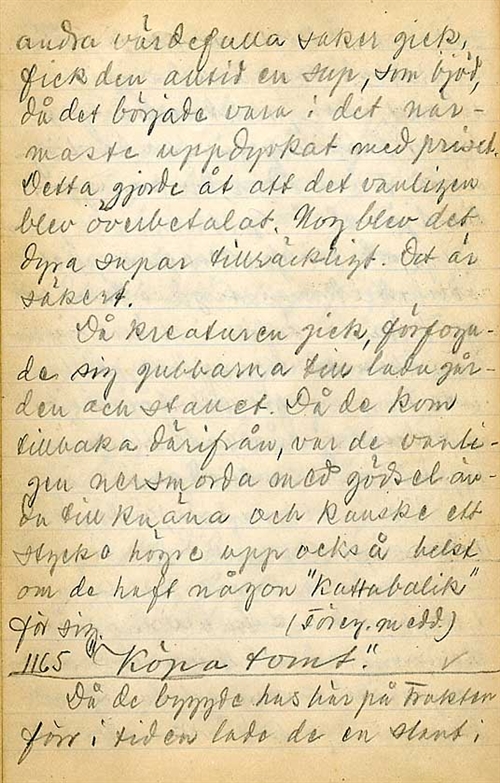 andra värdefulla saker gick,
fick den alltid en sup, som bjöd,
då det började vara i det när-
maste uppdyrkat med priset.
Detta gjorde åt att det vanligen
blev överbetalat. Nog blev det
dyra supar tillräckligt. Det är
säkert.
Då kreaturen gick, förfoga-
de sig gubbarna till ladugår-
den och stallet. Då de kom
tillbaka därifrån, var de vanli-
gen nersmorda med gödsel än-
da till knäna och kanske ett
stycke högre upp också helst
om de haft någon "Kattabalik"
för sig. (Föreg. medd.)
1165 "Köpa tomt."
Då de byggde hus här på trakten
förr i tiden lade de en slant i